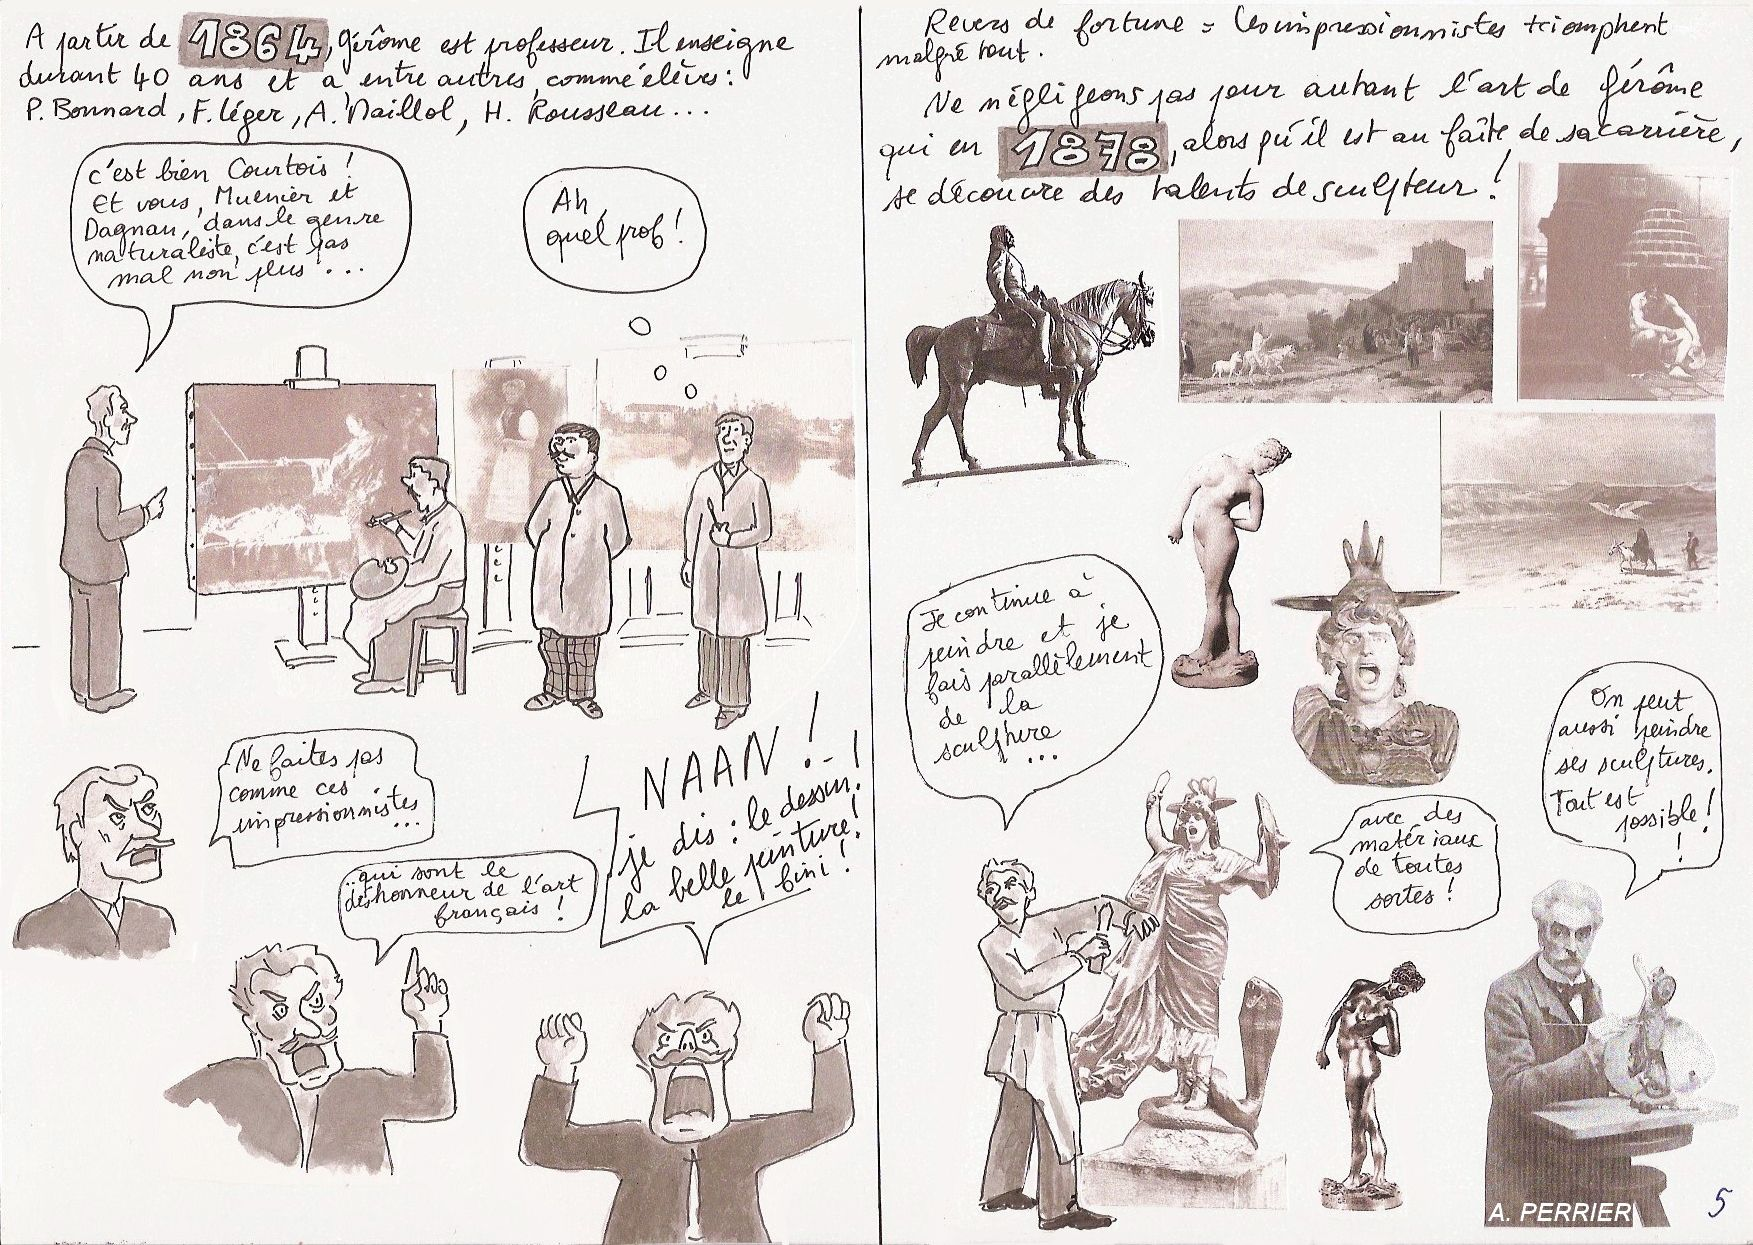 A partir de 1864, Gérôme est professeur. Il enseigne
durant 40 ans et a, entre autres, comme élèves :
P. Bonnard, F. Léger, A. Maillol, H. Rousseau...
c'est bien Courtois !
Et vous, Muenier et
Dagnan, dans le genre
naturaliste, c'est pas
mal non plus ...
Ah,
quel prof !
Ne faites pas
comme ces
impressionnistes
...
...qui sont le
déshonneur de l'art
français !
NAAN !
je dis : le dessin !
la belle peinture !
le fini !
Revers de fortune = les impressionnistes triomphent
malgré tout.
Ne négligeons pas pour autant l'art de Gérôme
qui en 1878, alors qu'il est au faîte de sa carrière,
se découvre des talents de sculpteur !
Je continue à
peindre et je
fais parallèlement
de la
sculpture
...
avec des
matériaux
de toutes
sortes !
On peut
aussi peindre
ses sculptures.
Tout est
possible !
!
A. PERRIER
5